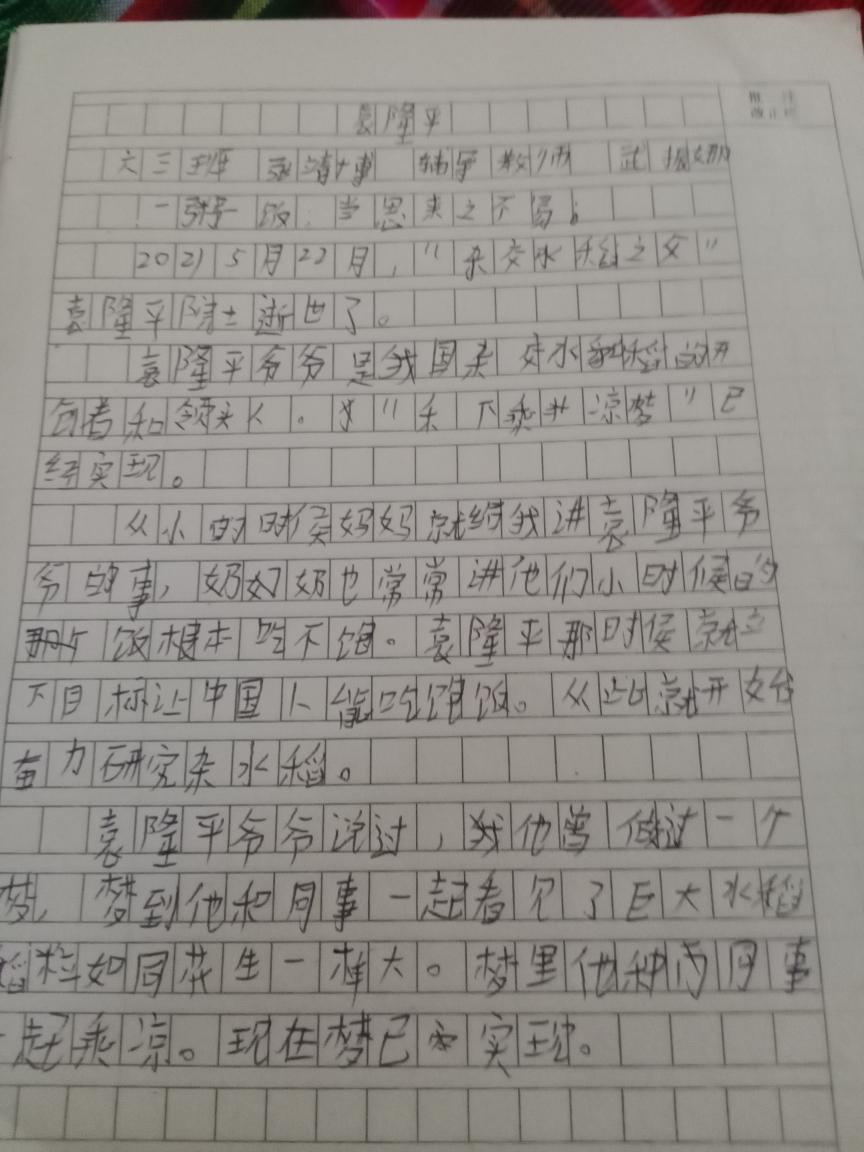 袁隆平
六三班 辅导教师 武
一粥一饭,当思来之不易;
2021 5月22月,"杂交水稻之父"
袁隆平院士逝世了。
袁隆平爷爷是我国杂交水稻的开
创者和领头人。"禾下乘凉梦"已
经实现。
从小的时侯妈妈就给我讲袁隆平爷
爷的事,奶奶也常常讲他们小时候的
饭根本吃不饱。袁隆平那时侯就立
下目标让中国人能吃饱饭。从此就开始
奋力研究杂水稻。
袁隆平爷爷说过,他曾做过一个
梦,梦到他和同事一起看见了巨大水稻
稻粒如同花生一样大。梦里他和同事
一起乘凉。现在梦已实现。
批 注
改正栏